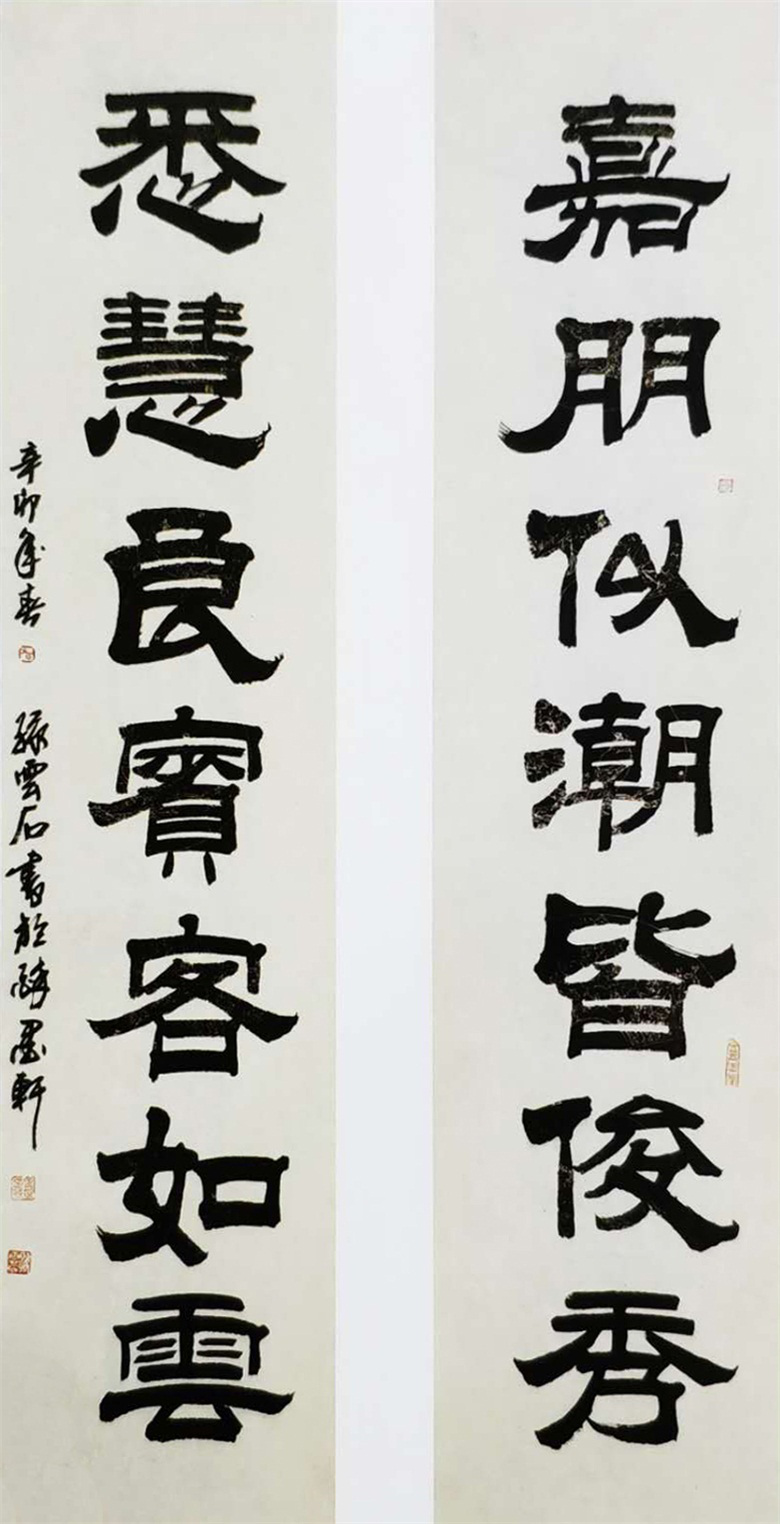 嘉朋似潮皆俊秀
悉慧良賓客如雲
辛卯年春
雲石書於醉墨軒